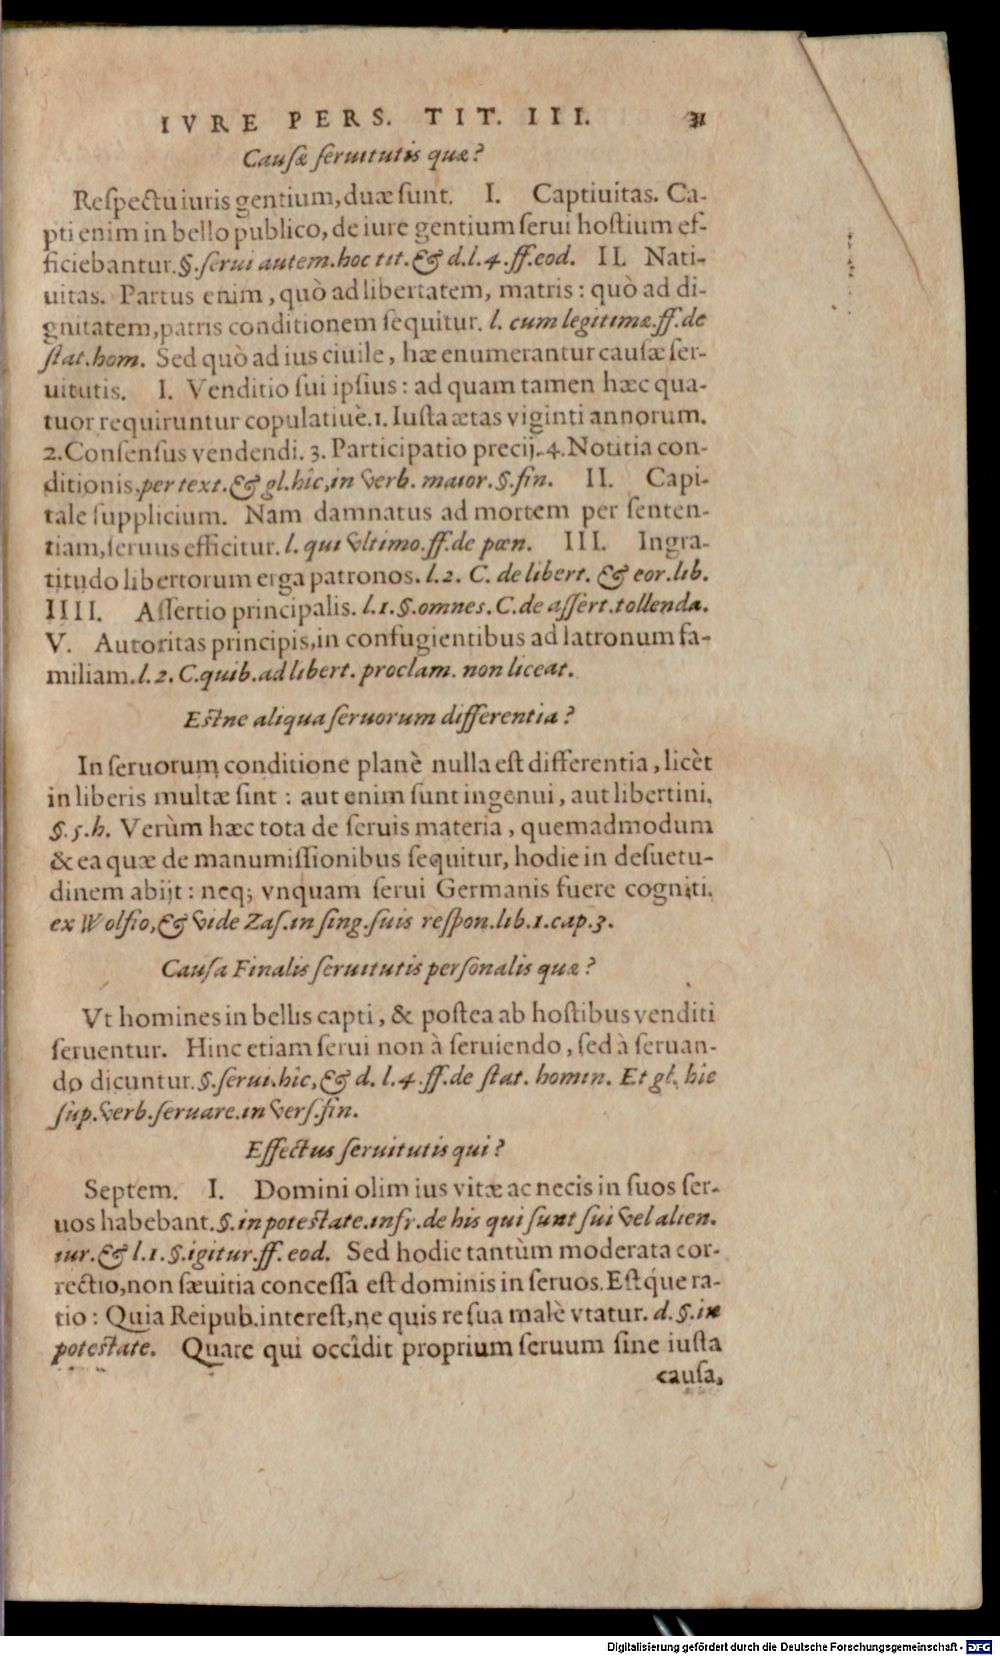 IVRE PERS. TIT. III. 31
Causæ seruitutis quæ?
Respectu iuris gentium, duæ sunt. I. Captiuitas. Ca-
pti enim in bello publico, de iure gentium serui hostium ef-
ficiebantur. §. serui autem. hoc tit. & d. l. 4. ff. eod. II. Nati-
uitas. Partus enim, quò ad libertatem, matris: quò ad di-
gnitatem, patris conditionem sequitur. l. cum legitimæ. ff. de
stat. hom. Sed quò ad ius ciuile, hæ enumerantur causæ ser-
uitutis. I. Venditio sui ipsius: ad quam tamen hæc qua-
tuor requiruntur copulatiuè. 1. Iusta ætas viginti annorum.
2. Consensus vendendi. 3. Participatio precij. 4. Notitia con-
ditionis, per text. & gl. hic, in verb. maior. §. fin. II. Capi-
tale supplicium. Nam damnatus ad mortem per senten-
tiam, seruus efficitur. l. qui vltimo. ff. de pœn. III. Ingra-
titudo libertorum erga patronos. l. 2. C. de libert. & eor. lib.
IIII. Assertio principalis. l. 1. §. omnes. C. de assert. tollenda.
V. Autoritas principis, in confugientibus ad latronum fa-
miliam. l. 2. C. quib. ad libert. proclam. non liceat.
Estne aliqua seruorum differentia?
In seruorum conditione planè nulla est differentia, licèt
in liberis multæ sint: aut enim sunt ingenui, aut libertini.
§. 5. h. Verùm hæc tota de seruis materia, quemadmodum
& ea quæ de manumissionibus sequitur, hodie in desuetu-
dinem abijt: neq; vnquam serui Germanis fuere cogniti.
ex Wolfio, & vide Zas. in sing. suis respon. lib. 1. cap. 3.
Causa Finalis seruitutis personalis quæ?
Vt homines in bellis capti, & postea ab hostibus venditi
seruentur. Hinc etiam serui non à seruiendo, sed à seruan-
do dicuntur. §. serui. hic, & d. l. 4. ff. de stat. homin. Et gl. hic
sup. verb. seruare. in vers. fin.
Effectus seruitutis qui?
Septem. I. Domini olim ius vitæ ac necis in suos ser-
uos habebant. §. in potestate. infr. de his qui sunt sui vel alien.
iur. & l. 1. §. igitur. ff. eod. Sed hodie tantùm moderata cor-
rectio, non sæuitia concessa est dominis in seruos. Estq́ue ra-
tio: Quia Reipub. interest, ne quis re sua malè vtatur. d. §. in
potestate. Quare qui occîdit proprium seruum sine iusta
causa,
Digitalisierung gefördert durch die Deutsche Forschungsgemeinschaft - DFG